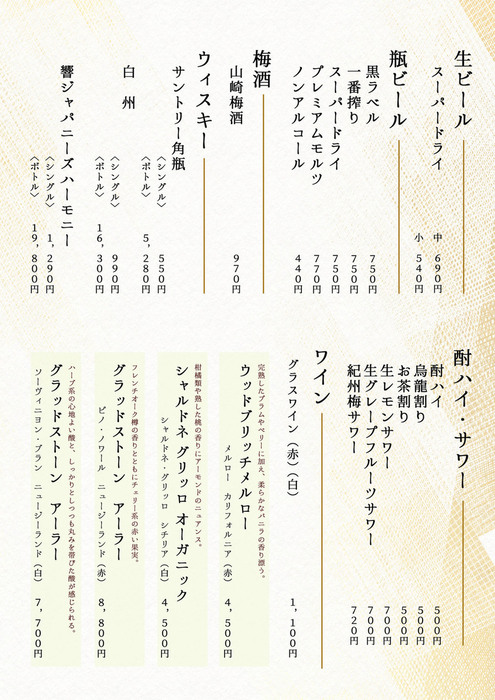 生ビール
スーパードライ
中 690円
小 540円
瓶ビール
黒ラベル 750円
一番搾り 750円
スーパードライ 750円
プレミアムモルツ 770円
ノンアルコール 440円
梅酒
山崎梅酒 970円
ウィスキー
サントリー角瓶
〈シングル〉 550円
〈ボトル〉 5,280円
白州
〈シングル〉 990円
〈ボトル〉 16,300円
響ジャパニーズハーモニー
〈シングル〉 1,290円
〈ボトル〉 19,800円
酎ハイ・サワー
酎ハイ 500円
烏龍割り 500円
お茶割り 500円
生レモンサワー 700円
生グレープフルーツサワー 700円
紀州梅サワー 720円
ワイン
グラスワイン(赤)(白) 1,100円
完熟したプラムやベリーに加え、柔らかなバニラの香り漂う。
ウッドブリッチメルロー
メルロー カリフォルニア(赤) 4,500円
柑橘類や熟した桃の香りにアーモンドのニュアンス。
シャルドネ グリッロ オーガニック
シャルドネ・グリッロ シチリア(白) 4,500円
フレンチオーク樽の香りとともにチェリー系の赤い果実。
グラッドストーン アーラー
ピノ・ノワール ニュージーランド(赤) 8,800円
ハーブ系の心地よい酸と、しっかりとしつつも丸みを帯びた酸が感じられる。
グラッドストーン アーラー
ソーヴィニヨン・ブラン ニュージーランド(白) 7,700円